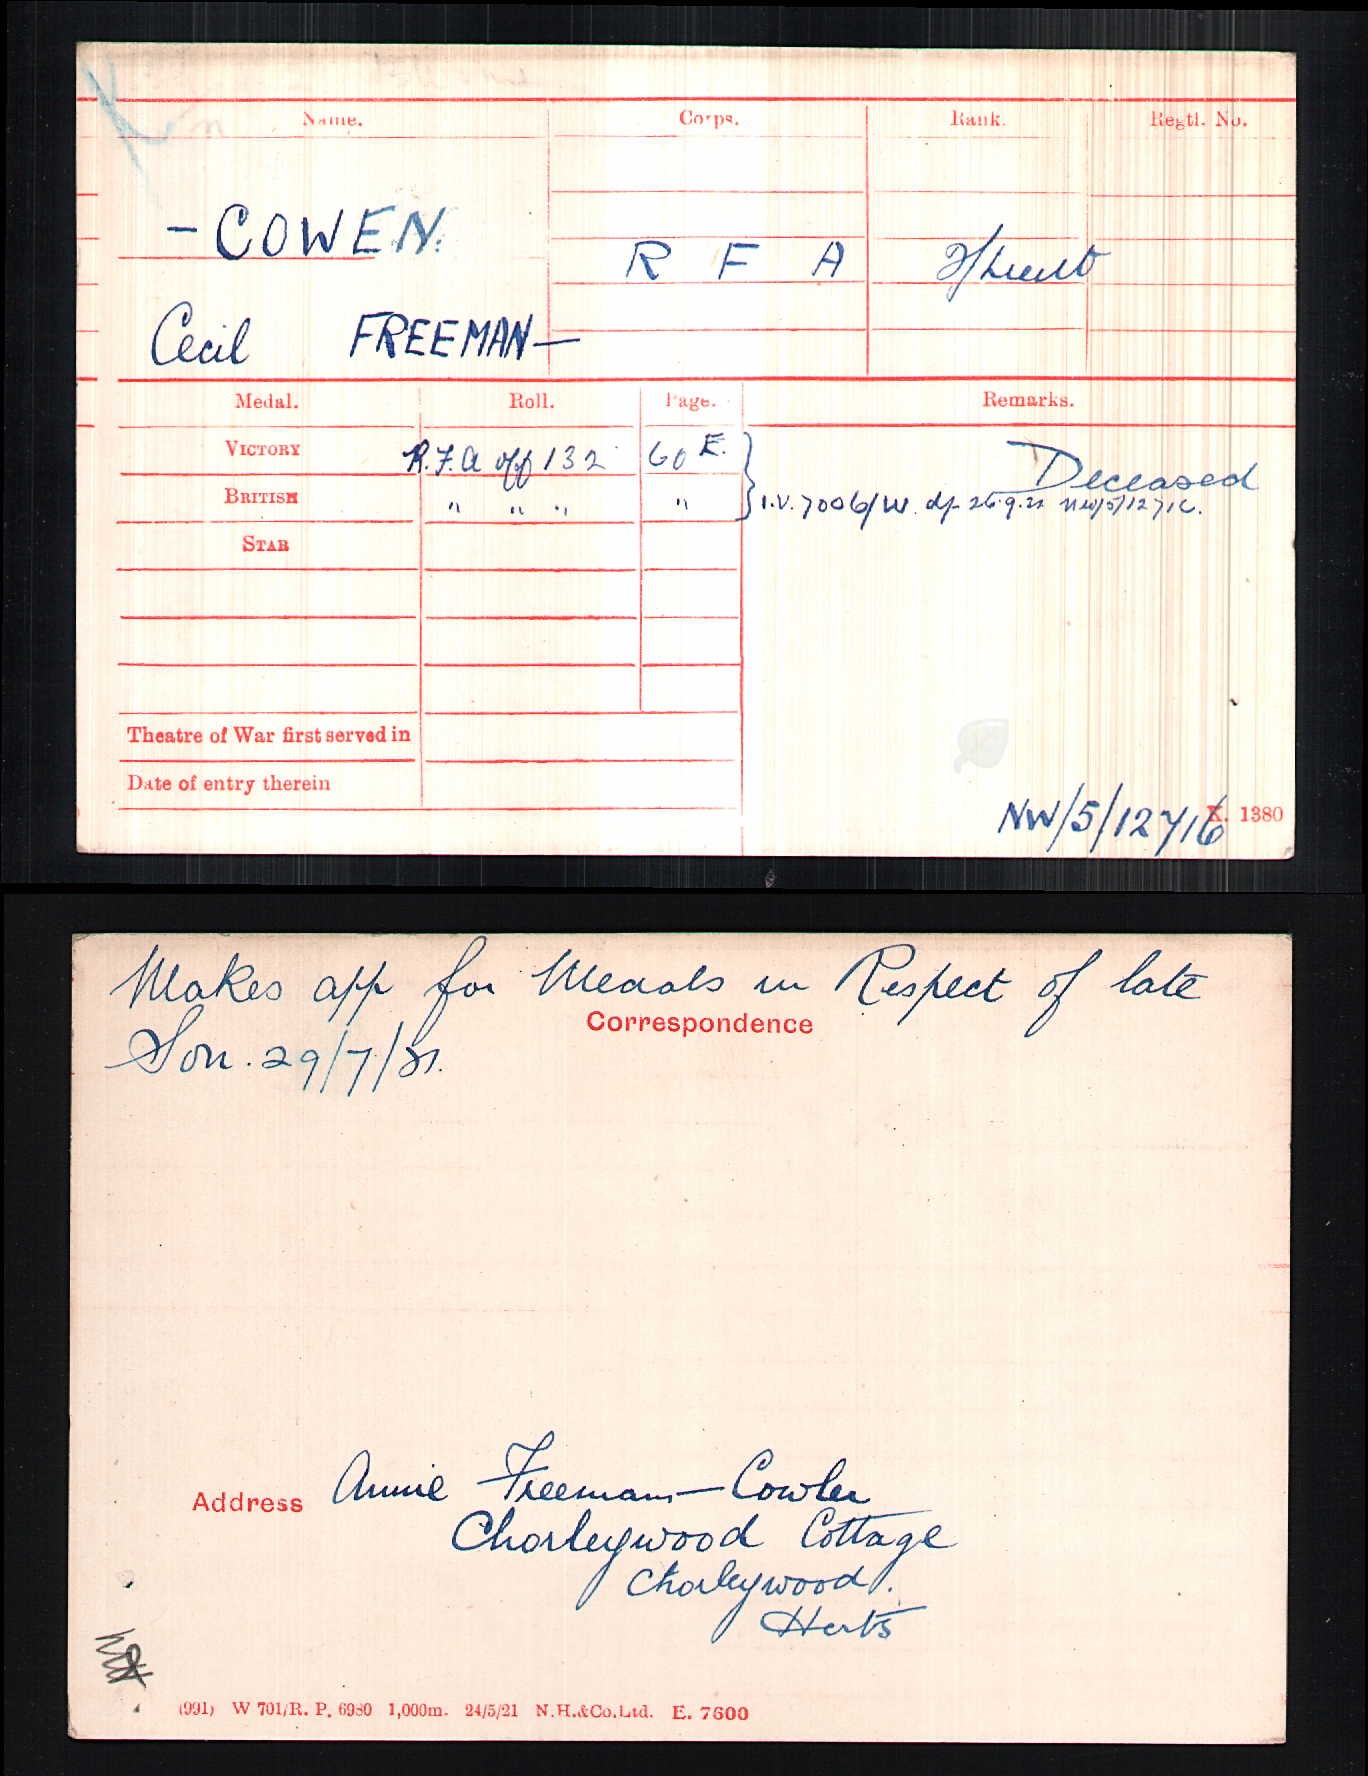 Name. Corps. Rank. Regtl. No.
- COWEN.
R F A 2/Lieut
Cecil FREEMAN -
Medal. Roll. Page. Remarks.
VICTORY R.F.A off 132 60 E. Deceased
BRITISH " " " " I.V. 7006/W. d/- 26.9.22 NW/5/12716.
STAR
Theatre of War first served in
Date of entry therein
NW/5/12716
K. 1380
Makes app for Medals in Respect of late
Correspondence
Son. 29/7/21.
Address Annie Freeman-Cowen
Chorleywood Cottage
Chorleywood.
Herts
(991) W 701/R. P. 6980 1,000m. 24/5/21 N.H.&Co.Ltd. E. 7600